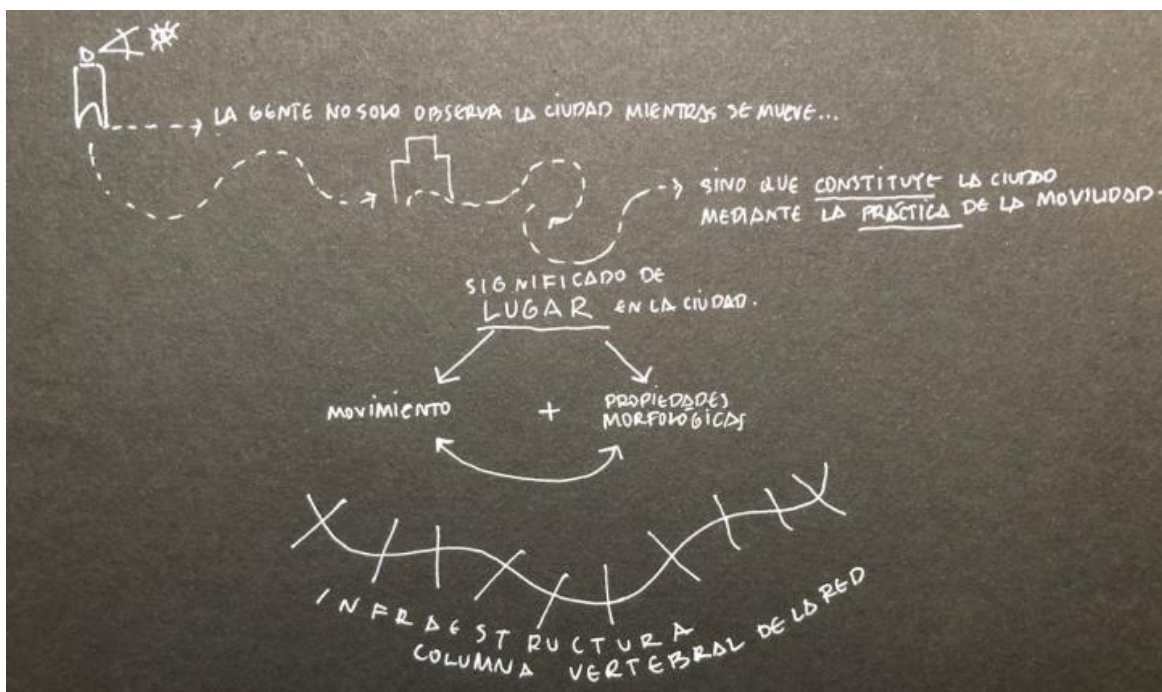 LA GENTE NO SOLO OBSERVA LA CIUDAD MIENTRAS SE MUEVE...
SINO QUE CONSTITUYE LA CIUDAD
MEDIANTE LA PRÁCTICA DE LA MOVILIDAD.
SIGNIFICADO DE
LUGAR EN LA CIUDAD.
MOVIMIENTO + PROPIEDADES
MORFOLÓGICAS
INFRAESTRUCTURA
COLUMNA VERTEBRAL DE LA RED